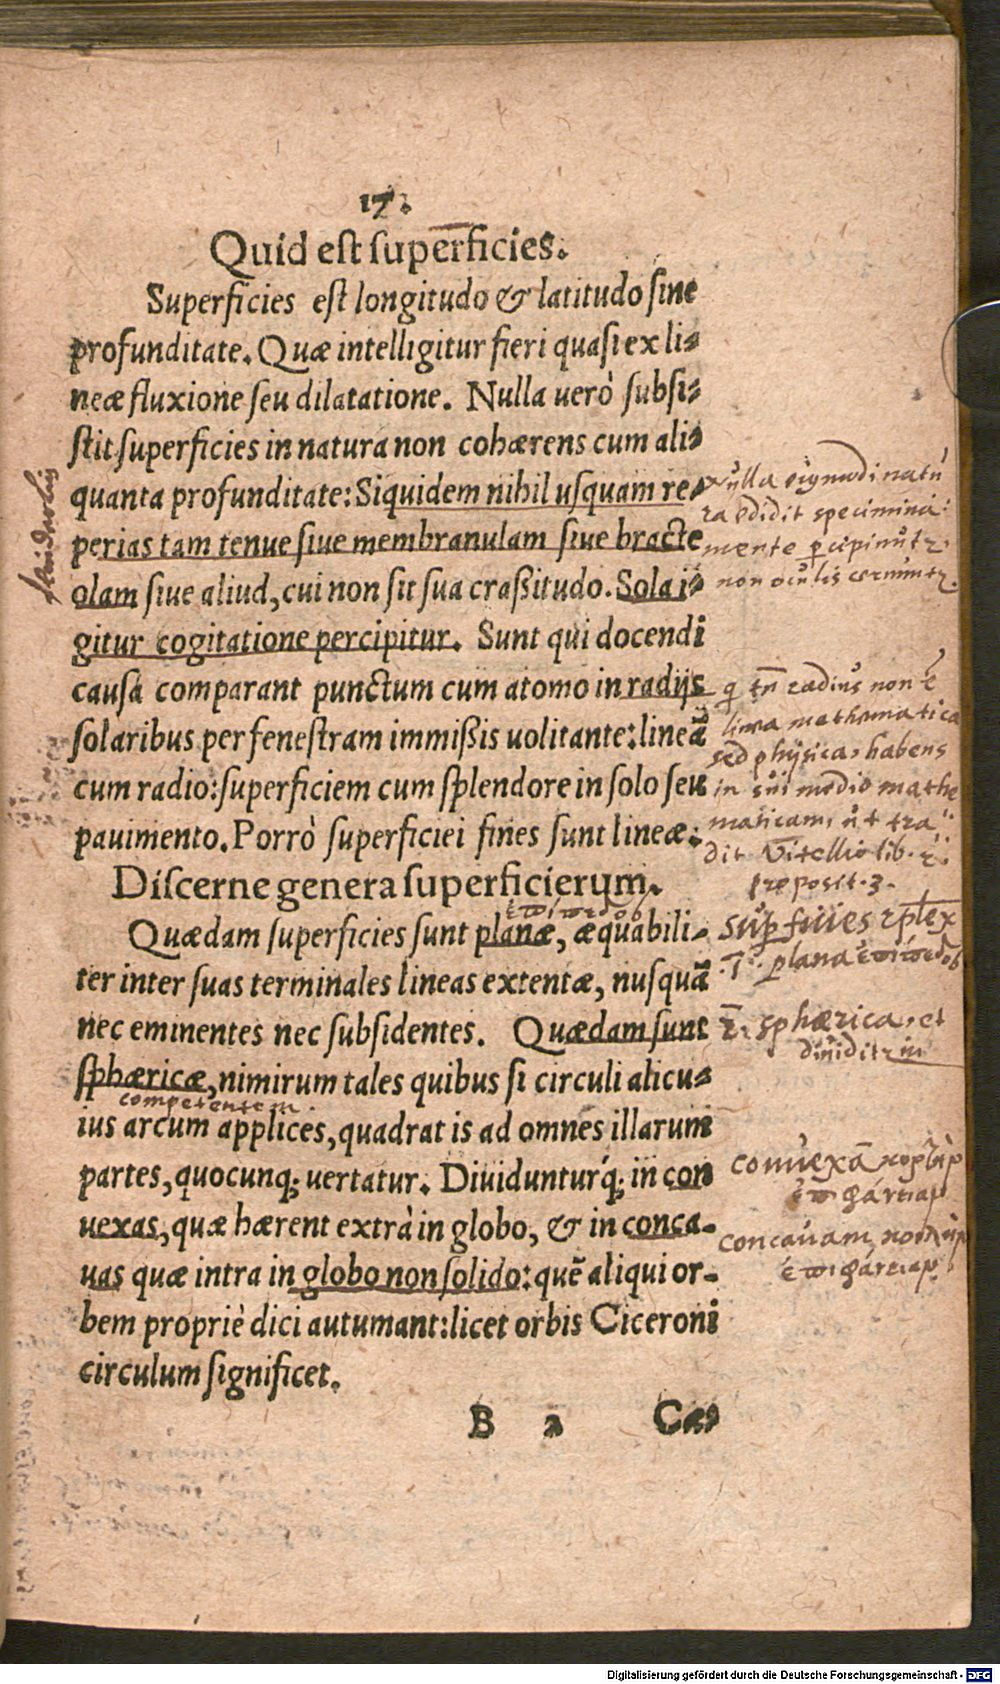 17.
Quid est superficies.
Superficies est longitudo & latitudo sine
profunditate. Quæ intelligitur fieri quasi ex li-
neæ fluxione seu dilatatione. Nulla uerò subsi-
stit superficies in natura non cohærens cum ali-
quanta profunditate: Siquidem nihil usquam re-
perias tam tenue siue membranulam siue bracte
olam siue aliud, cui non sit sua craßitudo. Sola i-
gitur cogitatione percipitur. Sunt qui docendi
causa comparant punctum cum atomo in radijs
solaribus per fenestram immißis uolitante: lineã
cum radio: superficiem cum splendore in solo seu
pauimento. Porrò superficiei fines sunt lineæ.
Discerne genera superficierum.
Quædam superficies sunt planæ, æquabili-
ter inter suas terminales lineas extentæ, nusquã
nec eminentes nec subsidentes. Quædam sunt
sphæricæ, nimirum tales quibus si circuli alicu-
competentem
ius arcum applices, quadrat is ad omnes illarum
partes, quocunq; uertatur. Diuidunturq́; in con
uexas, quæ hærent extrà in globo, & in conca-
uas quæ intra in globo non solido: quẽ aliqui or-
bem propriè dici autumant: licet orbis Ciceroni
circulum significet.
B 2 Cæ-
Nulla natu
ra edidit specimina
mente
non oculis
radius non
linea mathematica
sed physica, habens
in sui medio mathe
maticam, ut tra
dit Vitellio lib. 2.
proposit. 3.
plana
2. sphærica, et
conuexã
concauam
Digitalisierung gefördert durch die Deutsche Forschungsgemeinschaft - DFG